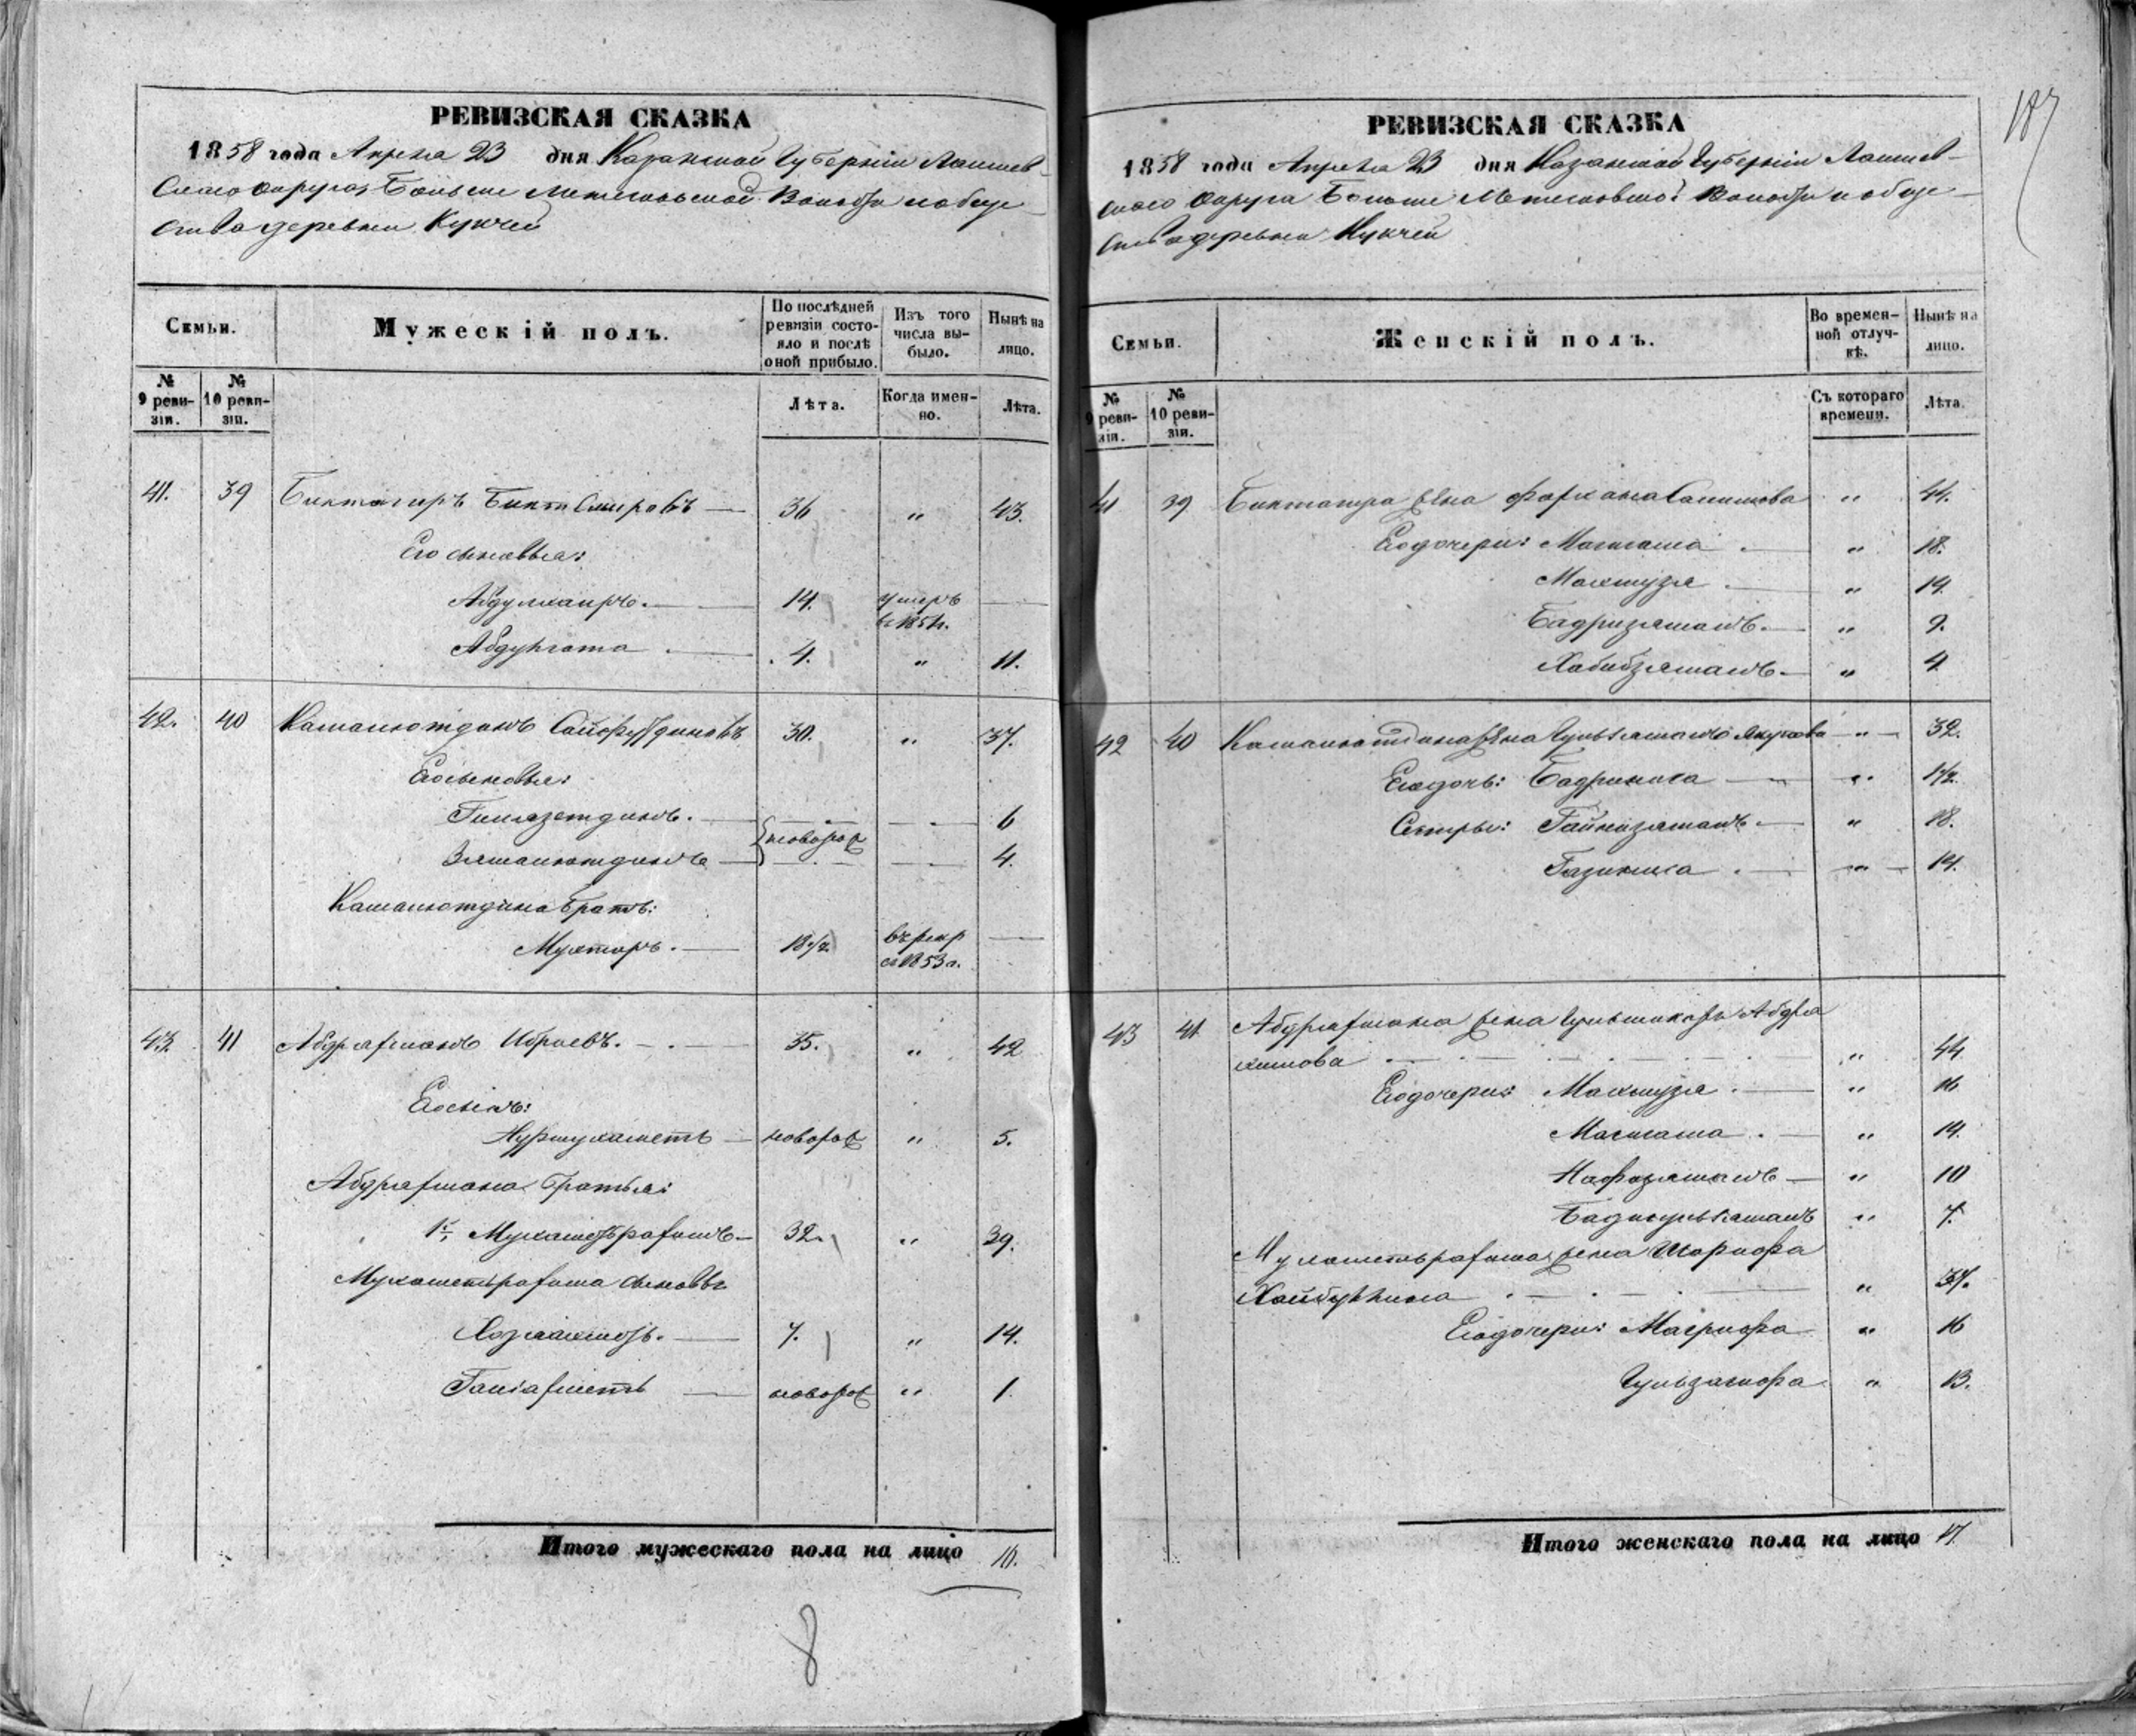 РЕВИЗСКАЯ СКАЗКА
1858 года Апреля 23 дня Казанской Губернiи Лаишев-
скаго округа, Больше Метесковской Волости и обще-
ства деревни Кукчей
Семьи.
Мужескiй полъ.
По послѣдней ревизiи состо-яло и послѣ оной прибыло.
Изъ того числа вы-было.
Нынѣ на лицо.
№ 9 реви-зiи.
№ 10 реви-зiи.
Лѣта.
Когда имен-но.
Лѣта.
41. 39 Биктагиръ Биктемировъ — 36 " 43.
Его сыновья:
Абдулкаиръ. — 14. умеръ в 1854. —
Абдулгата . — 4. " 11.
42. 40 Камалютдинъ Сайфутдиновъ 30. " 37.
Его сыновья:
Гимазетдинъ. — новорож — 6
Зямалютдинъ — — 4.
Камалютдина братъ:
Мухтаръ. — 18 1/2 въ рекр с 1853 г. —
43. 41 Абдрахманъ Ибраевъ. — 35. " 42
Его сынъ:
Нурмухаметъ — новорож " 5.
Абдрахмана братья:
1й, Мухаметрахимъ — 32. " 39.
Мухаметьрахима сыновья
— 7. " 14.
— новорож " 1.
Итого мужескаго пола на лицо 10.
8
187
РЕВИЗСКАЯ СКАЗКА
1858 года Апреля 23 дня Казанской Губернiи Лаишев-
скаго округа Больше Метесковской Волости и обще-
ства деревни Кукчей
Семьи.
Женскiй полъ.
Во времен-ной отлуч-кѣ.
Нынѣ на лицо.
№ 9 реви-зiи.
№ 10 реви-зiи.
Съ котораго времени.
Лѣта.
41 39 Биктагира жена Салимова " 44.
Его дочери: Магигама . — " 18.
Махмузя . — " 14.
Бадризяманъ. — " 9.
Хабибзяманъ — " 4
42 40 Камалютдина жена Гульзяманъ Якупова — " — 32.
Его дочь: Бадриниса — " 1/2.
Сестры: Гайнизяманъ — " 18.
Газиниса . — " — 14.
43 41 Абдрахмана жена Абдря
химова — " 44
Его дочери: Махмузя . — " 16
Магигама . — " 14.
Нафизяманъ — " 10
" 7.
Мухаметьрахима жена Шарифа
Хайбуллина . — " 37.
Его дочери: Магрифа " 16
Гульзагифа " 13.
Итого женскаго пола на лицо 17.